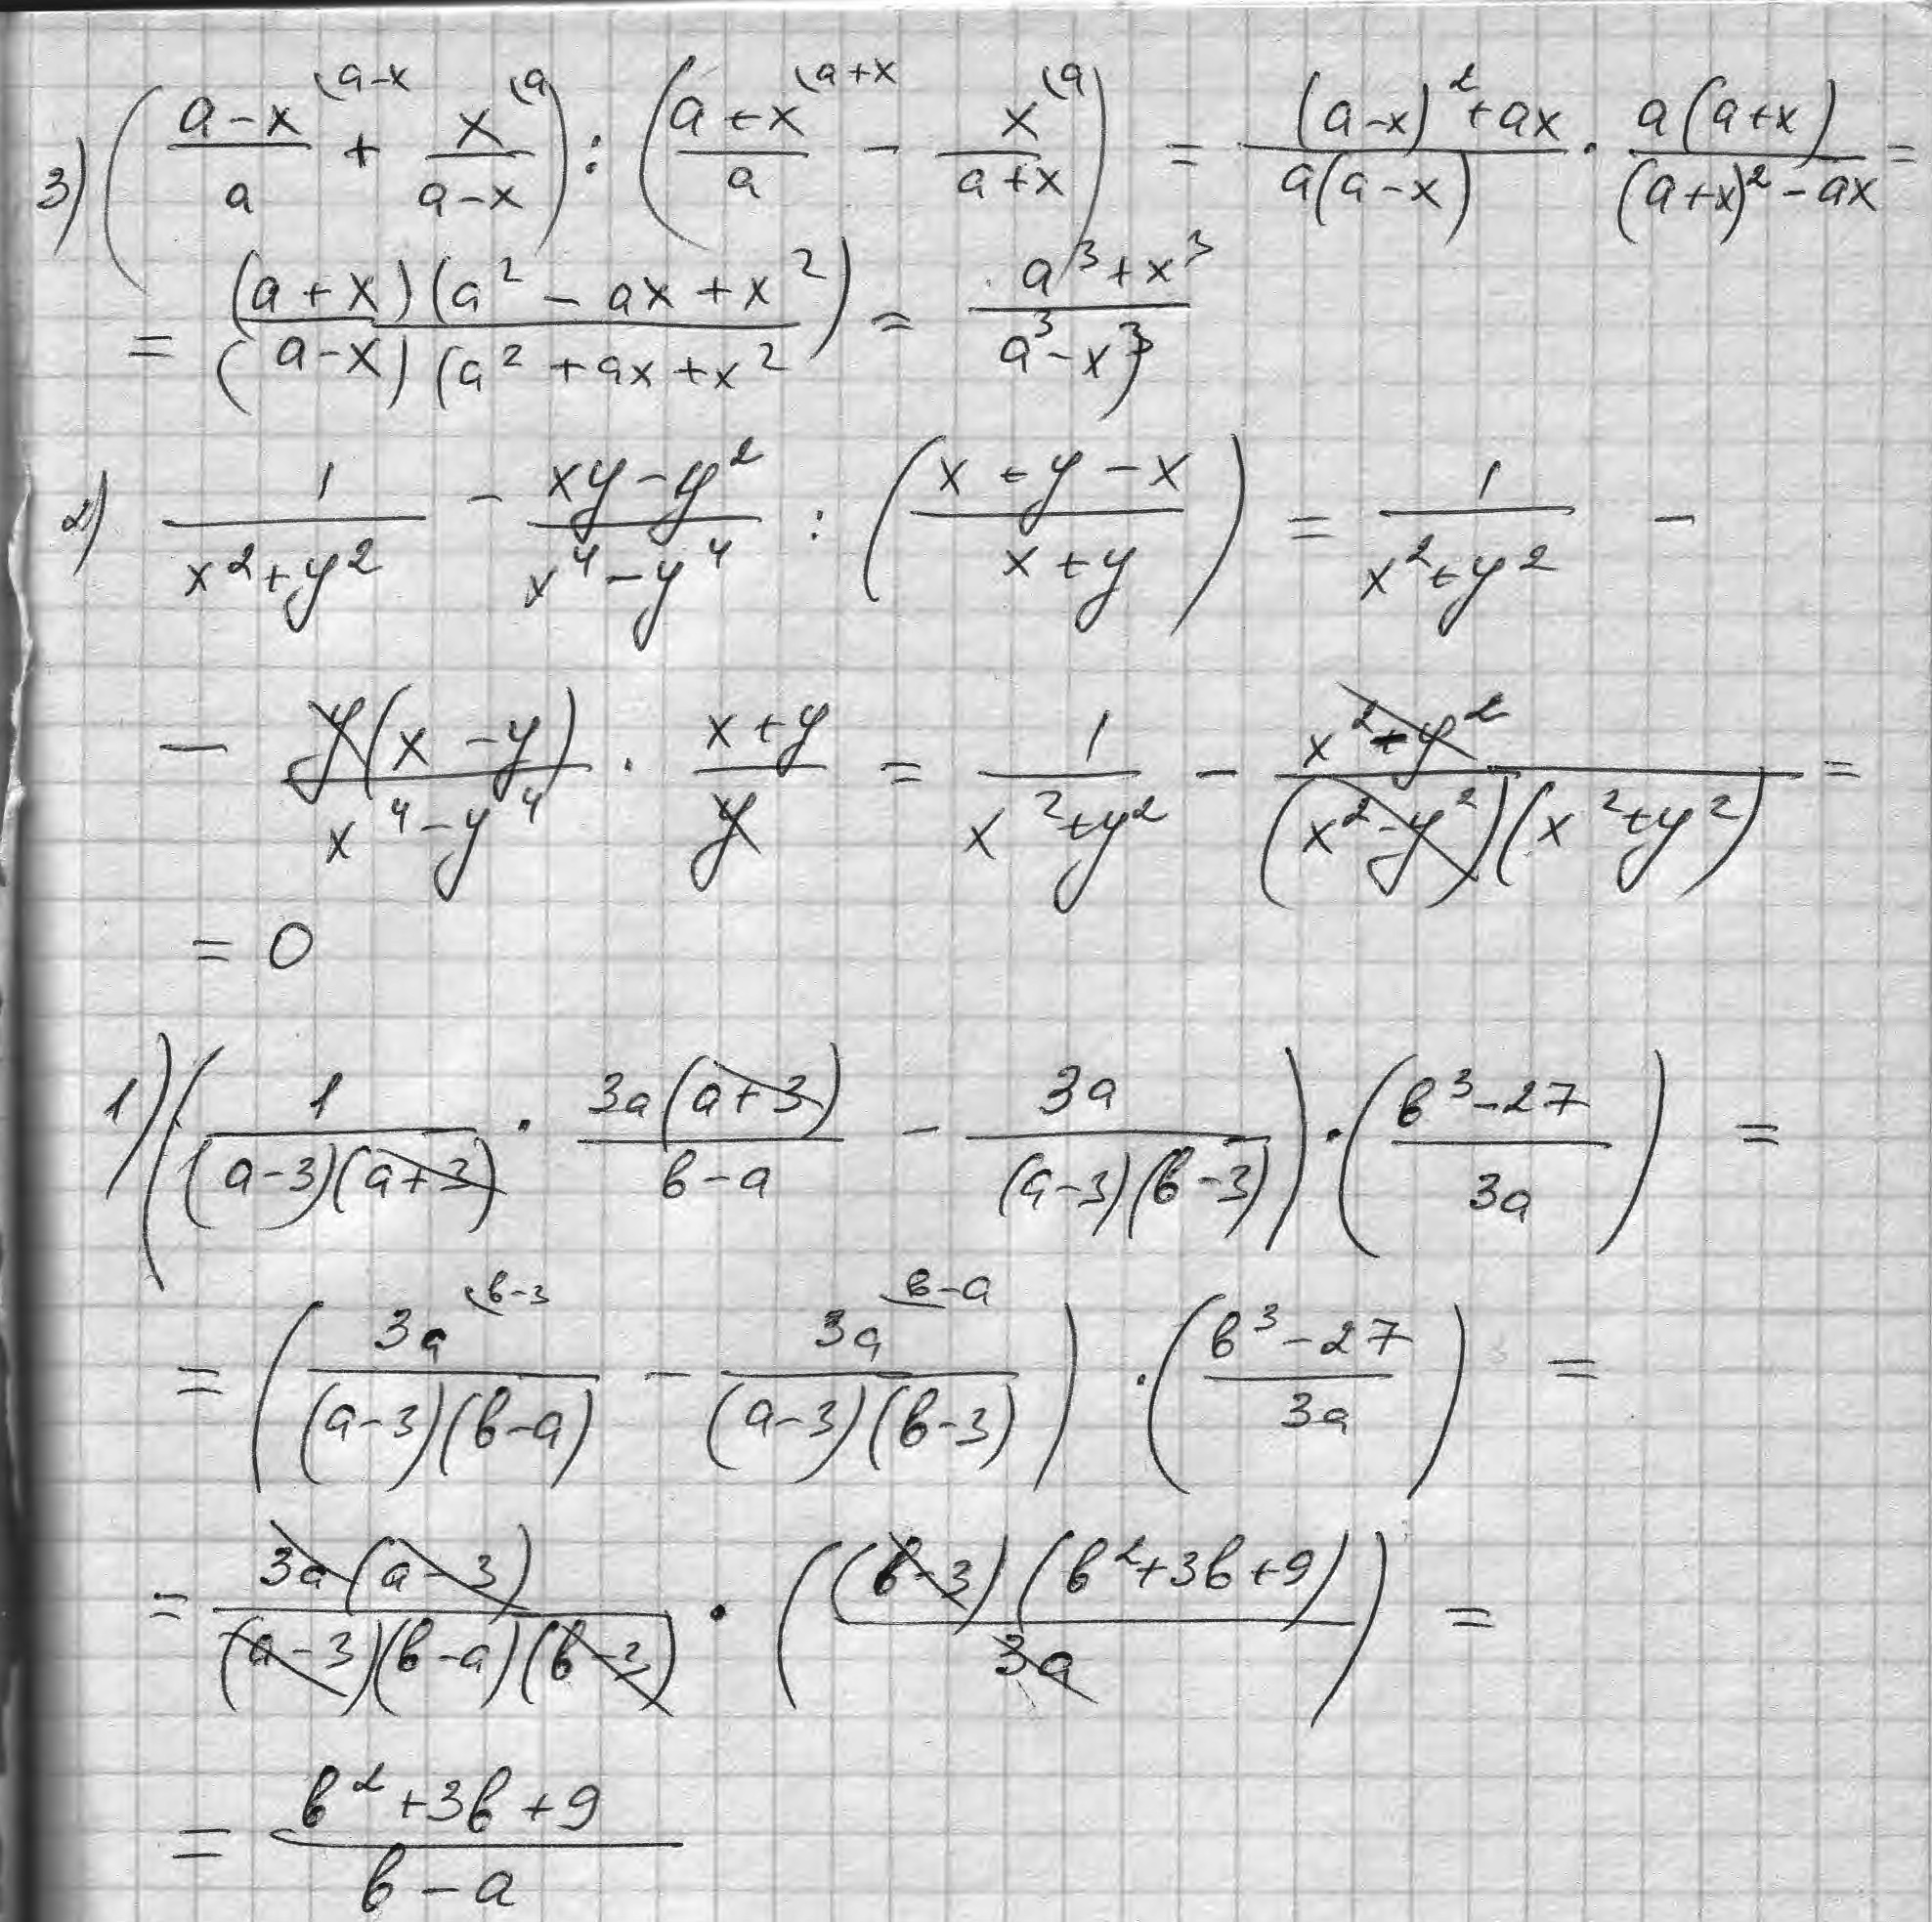 3) ( (a-x)/a ^(a-x + x/(a-x) ^(a ) : ( (a+x)/a ^(a+x - x/(a+x) ^(a ) = ((a-x)² + ax)/(a(a-x)) · a(a+x)/((a+x)² - ax) =
= (a+x)(a² - ax + x²)/((a-x)(a² + ax + x²) = (a³ + x³)/(a³ - x³)
2) 1/(x² + y²) - (xy - y²)/(x⁴ - y⁴) : ( (x + y - x)/(x + y) ) = 1/(x² + y²) -
- y(x - y)/(x⁴ - y⁴) · (x + y)/y = 1/(x² + y²) - (x² - y²)/((x² - y²)(x² + y²)) =
= 0
1) ( 1/((a-3)(a+3)) · 3a(a+3)/(в-a) - 3a/((a-3)(в-3)) ) · ( (в³ - 27)/3a ) =
= ( 3a/((a-3)(в-a)) ^(в-3 - 3a/((a-3)(в-3)) ^в-a ) · ( (в³ - 27)/3a ) =
= 3a(a-3)/((a-3)(в-a)(в-3)) · ( (в-3)(в² + 3в + 9)/3a ) =
= (в² + 3в + 9)/(в - a)